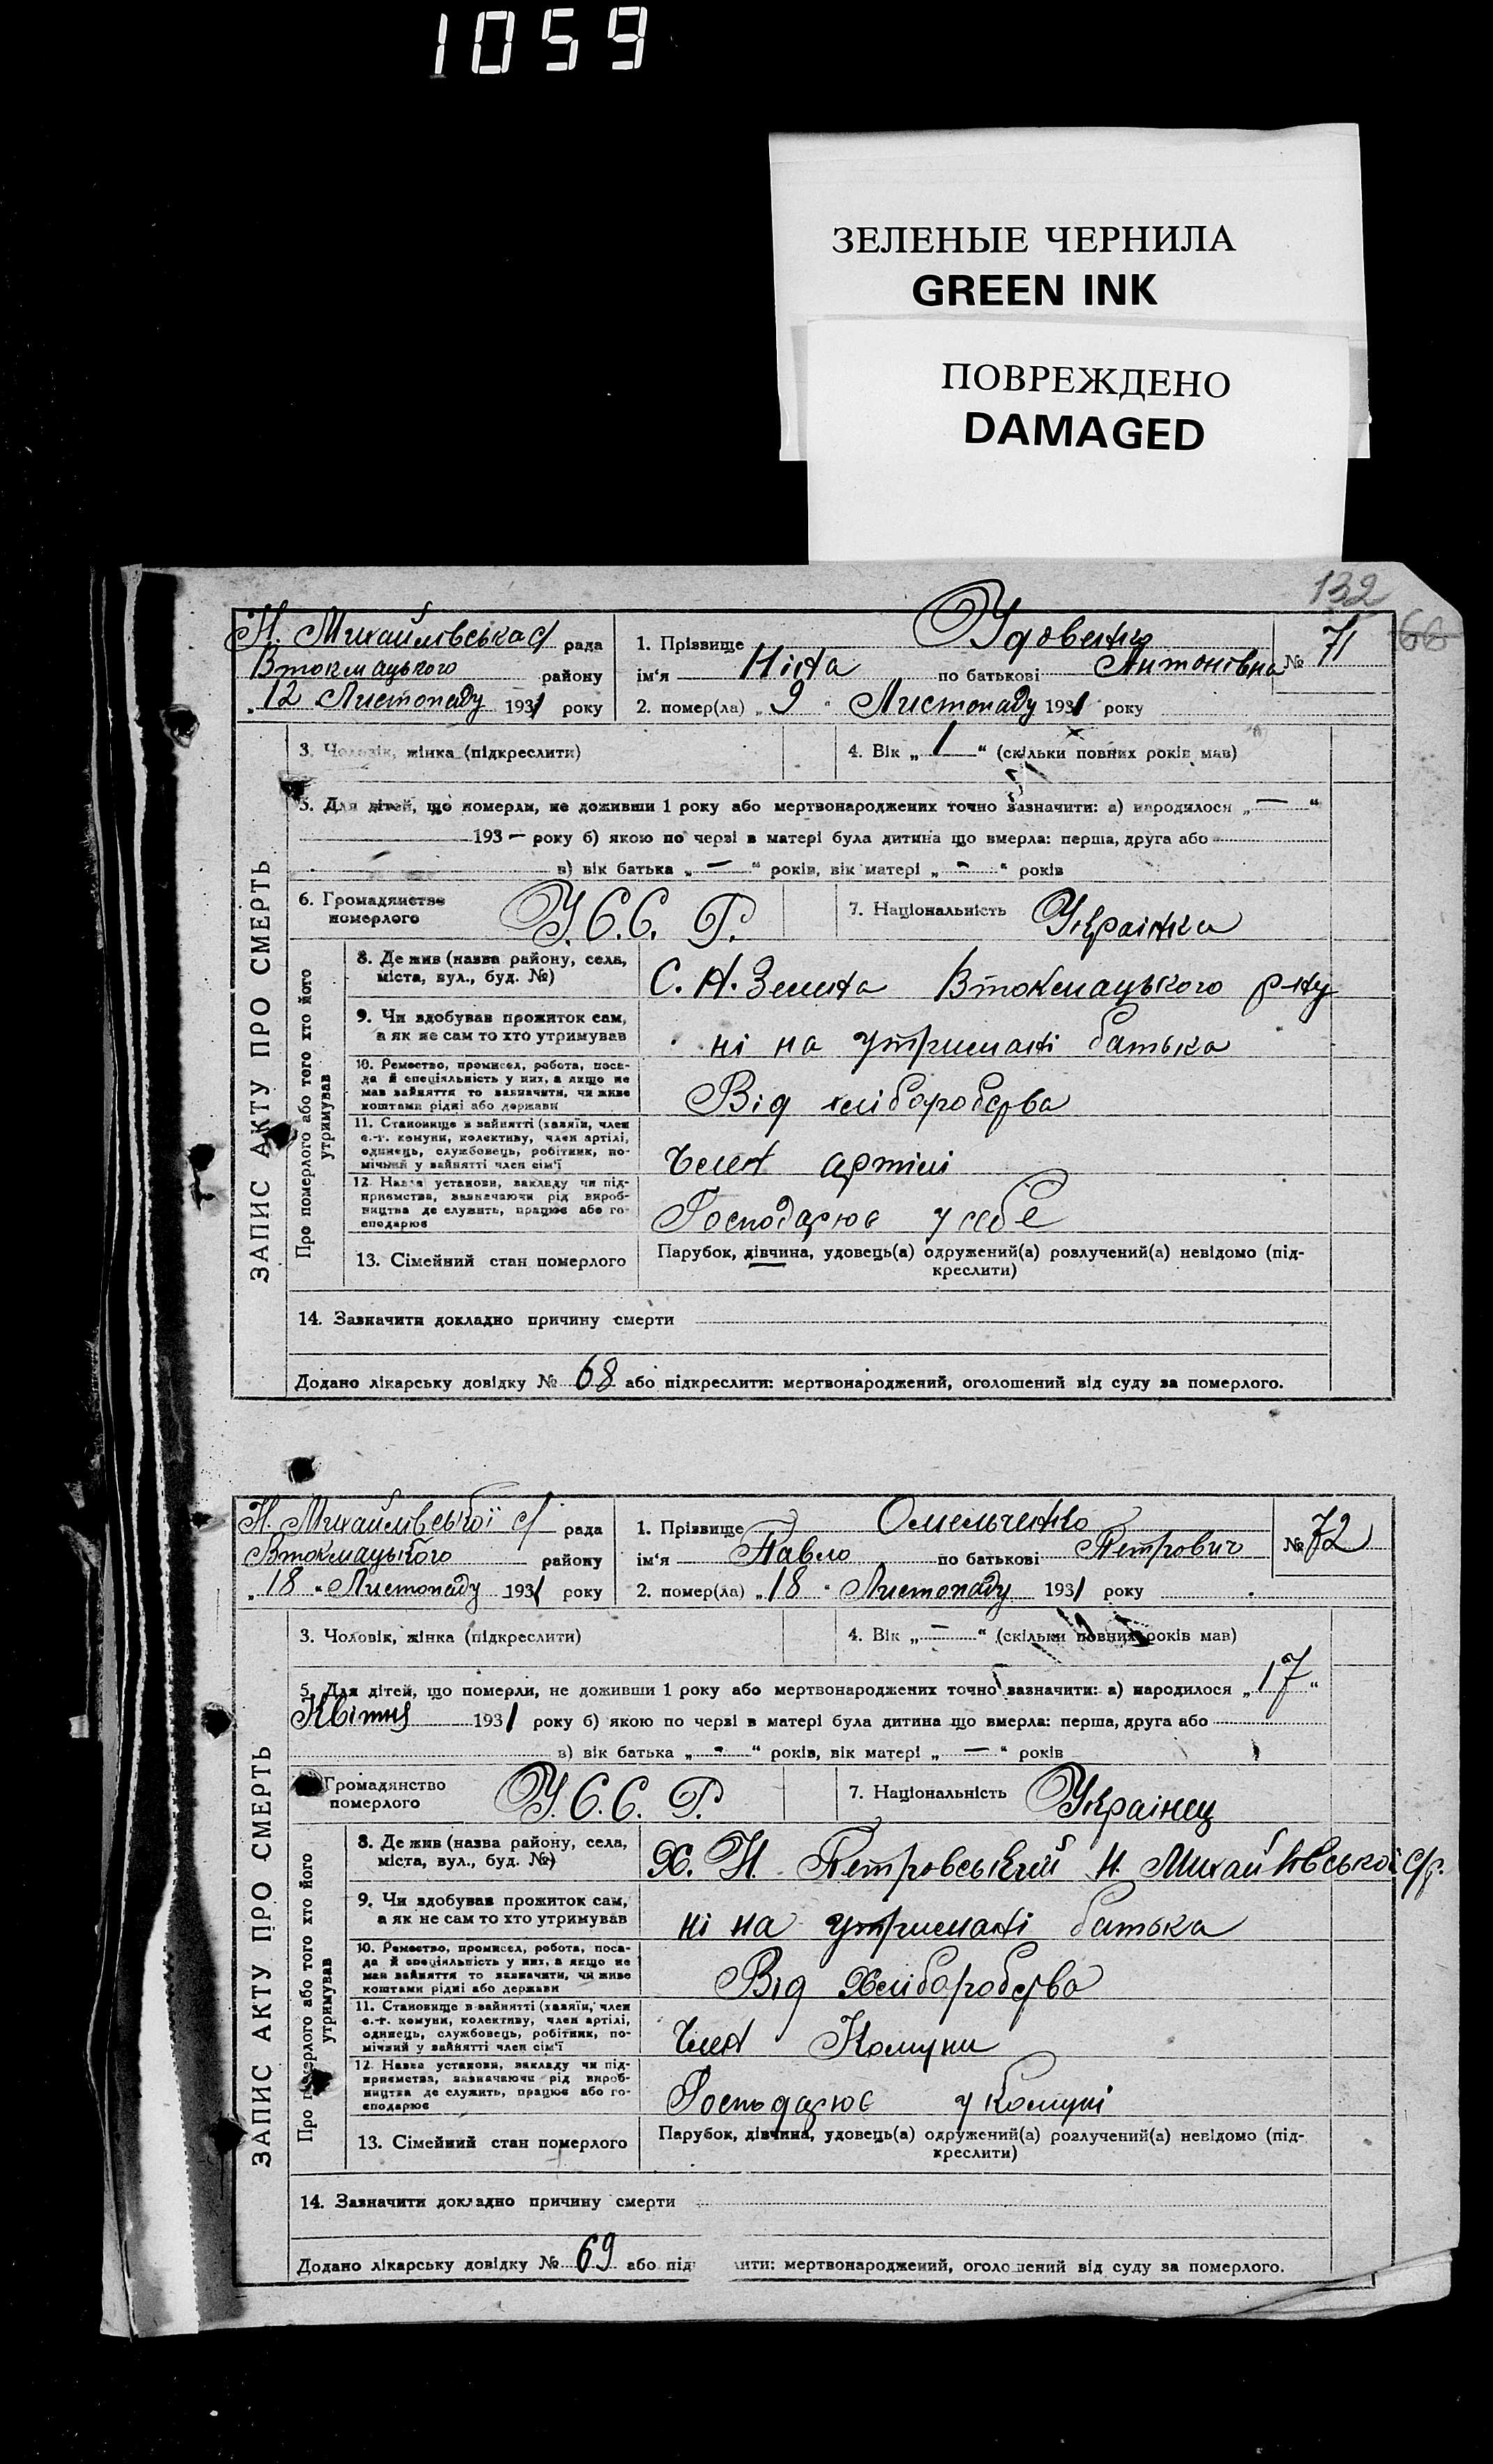 1059
ЗЕЛЕНЫЕ ЧЕРНИЛА
GREEN INK
ПОВРЕЖДЕНО
DAMAGED
132
68
Н. Михайлівська с/ рада
Втокмацького району
„12 Листопаду 1931 року
1. Прізвище Удовенко
ім'я Ніна по батькові Антонівна
№ 71
2. помер(ла) „9" Листопаду 1931 року
ЗАПИС АКТУ ПРО СМЕРТЬ
3. Чоловік, жінка (підкреслити)
4. Вік „1" (скільки повних років мав)
5. Для дітей, що померли, не доживши 1 року або мертвонароджених точно зазначити: а) народилося „—"
193— року б) якою по черзі в матері була дитина що вмерла: перша, друга або
в) вік батька „—" років, вік матері „-" років
6. Громадянство
померлого
У.С.С.Р.
7. Національність Українка
Про померлого або того хто його
утримував
8. Де жив (назва району, села,
міста, вул., буд. №)
С. Н. Зелена Втокмацького р-ну
9. Чи здобував прожиток сам,
а як не сам то хто утримував
ні на утримані батька
10. Ремество, промисел, робота, поса-
да й спеціяльність у них, а якщо не
мав зайняття то зазначити, чи живе
коштами рідні або держави
Від хліборобства
11. Становище в зайнятті (хазяїн, член
с.-г. комуни, колективу, член артілі,
одинець, службовець, робітник, по-
мічний у зайнятті член сім'ї
Член артілі
12. Назва установи, закладу чи під-
приємства, зазначаючи рід вироб-
ництва де служить, працює або го-
сподарює
Господарює у себе
13. Сімейний стан померлого
Парубок, дівчина, удовець(а) одружений(а) розлучений(а) невідомо (під-
креслити)
14. Зазначити докладно причину смерти
Додано лікарську довідку № 68 або підкреслити: мертвонароджений, оголошений від суду за померлого.
Н. Михайлівської с/ рада
Втокмацького району
„18" Листопаду 1931 року
1. Прізвище Омельченко
ім'я Павло по батькові Петрович
№ 72
2. помер(ла) „18" Листопаду 1931 року
ЗАПИС АКТУ ПРО СМЕРТЬ
3. Чоловік, жінка (підкреслити)
4. Вік „—" (скільки повних років мав)
5. Для дітей, що померли, не доживши 1 року або мертвонароджених точно зазначити: а) народилося „17"
Квітня 1931 року б) якою по черзі в матері була дитина що вмерла: перша, друга або
в) вік батька „-" років, вік матері „—" років
Громадянство
померлого
У.С.С.Р.
7. Національність Українец
Про померлого або того хто його
утримував
8. Де жив (назва району, села,
міста, вул., буд. №)
Х. Н. Петровський Н. Михайлівської с/р.
9. Чи здобував прожиток сам,
а як не сам то хто утримував
ні на утримані батька
10. Ремество, промисел, робота, поса-
да й спеціяльність у них, а якщо не
мав зайняття то зазначити, чи живе
коштами рідні або держави
Від Хліборобства
11. Становище в зайнятті (хазяїн, член
с.-г. комуни, колективу, член артілі,
одинець, службовець, робітник, по-
мічний у зайнятті член сім'ї
Член Комуни
12. Назва установи, закладу чи під-
приємства, зазначаючи рід вироб-
ництва де служить, працює або го-
сподарює
Господарює у комуні
13. Сімейний стан померлого
Парубок, дівчина, удовець(а) одружений(а) розлучений(а) невідомо (під-
креслити)
14. Зазначити докладно причину смерти
Додано лікарську довідку № 69 або під ити: мертвонароджений, оголошений від суду за померлого.